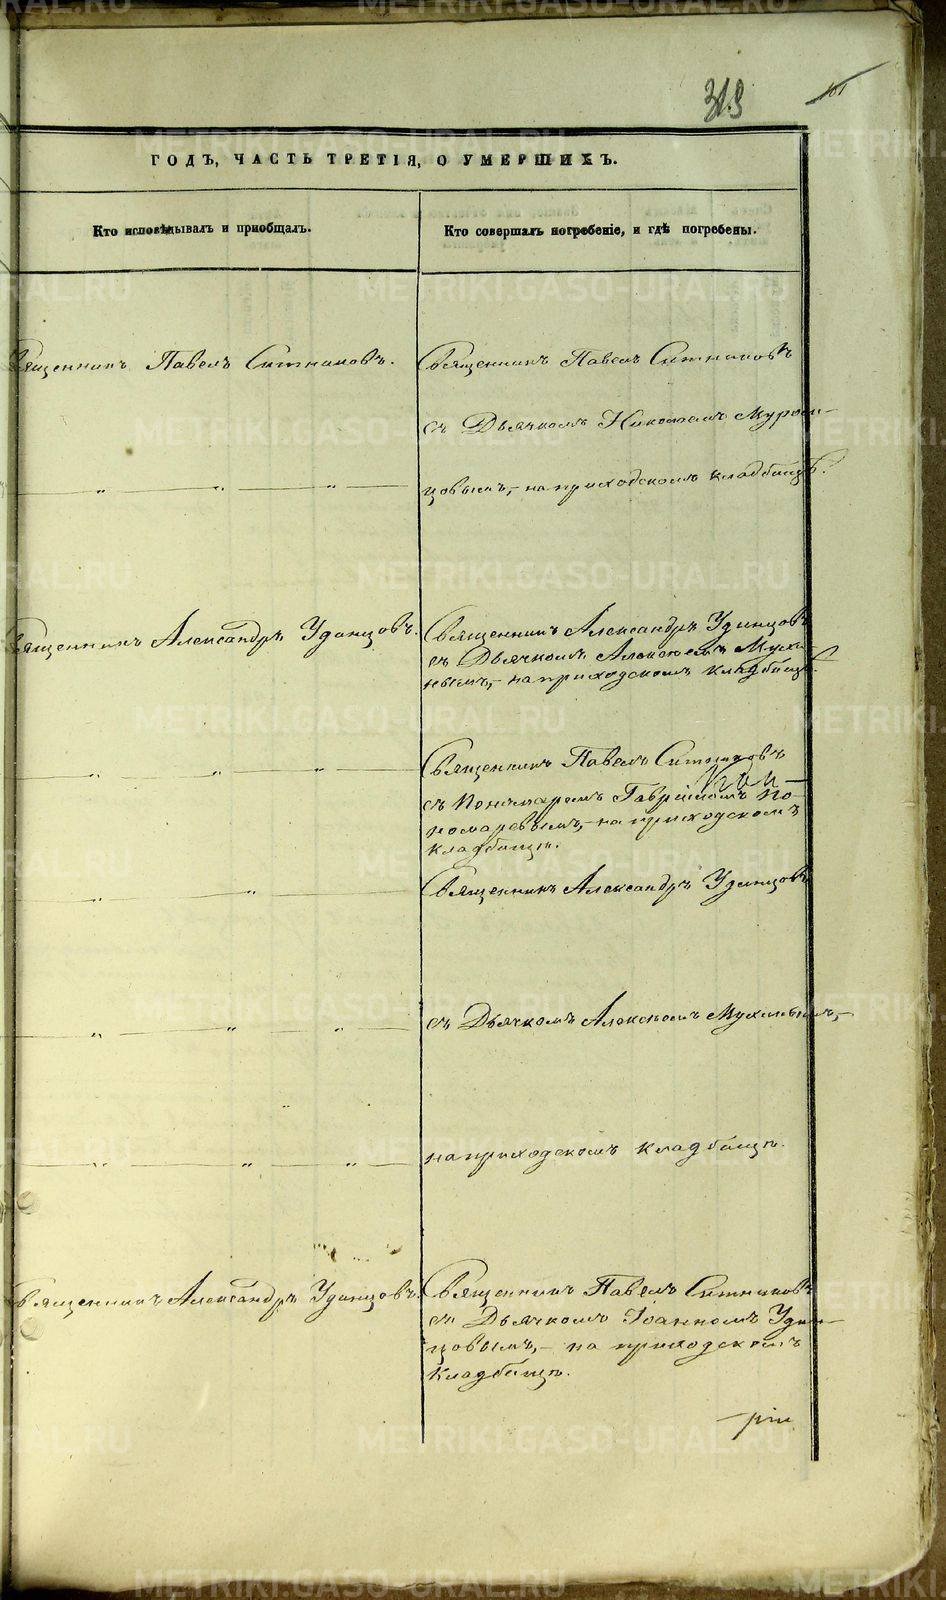 319
101
ГОДЪ, ЧАСТЬ ТРЕТІЯ, О УМЕРШИХЪ.
Кто исповѣдывалъ и пріобщалъ.
Кто совершалъ погребеніе, и гдѣ погребены.
Священникъ Павелъ Ситниковъ.
Священникъ Павелъ Ситниковъ
съ Дьячкомъ Николаемъ
„ „ „
цовымъ, - на приходскомъ кладбищѣ.
Священникъ Александръ Удинцовъ.
Священникъ Александръ Удинцовъ
съ Дьячкомъ Алексѣемъ Мухи-
нымъ, - на приходскомъ кладбищѣ.
„ „ „
Священникъ Павелъ Ситниковъ
съ Пономаремъ Гавріиломъ По-
номаревымъ, - на приходскомъ
кладбищѣ.
„ „
Священникъ Александръ Удинцовъ
„ „ „
съ Дьячкомъ Алексѣемъ Мухинымъ, -
„ „ „
на приходскомъ кладбищѣ.
Священникъ Александръ Удинцовъ.
Священникъ Павелъ Ситниковъ
съ Дьячкомъ Іоанномъ Удин-
цовымъ, - на приходскомъ
кладбищѣ.
METRIKI.GASO-URAL.RU